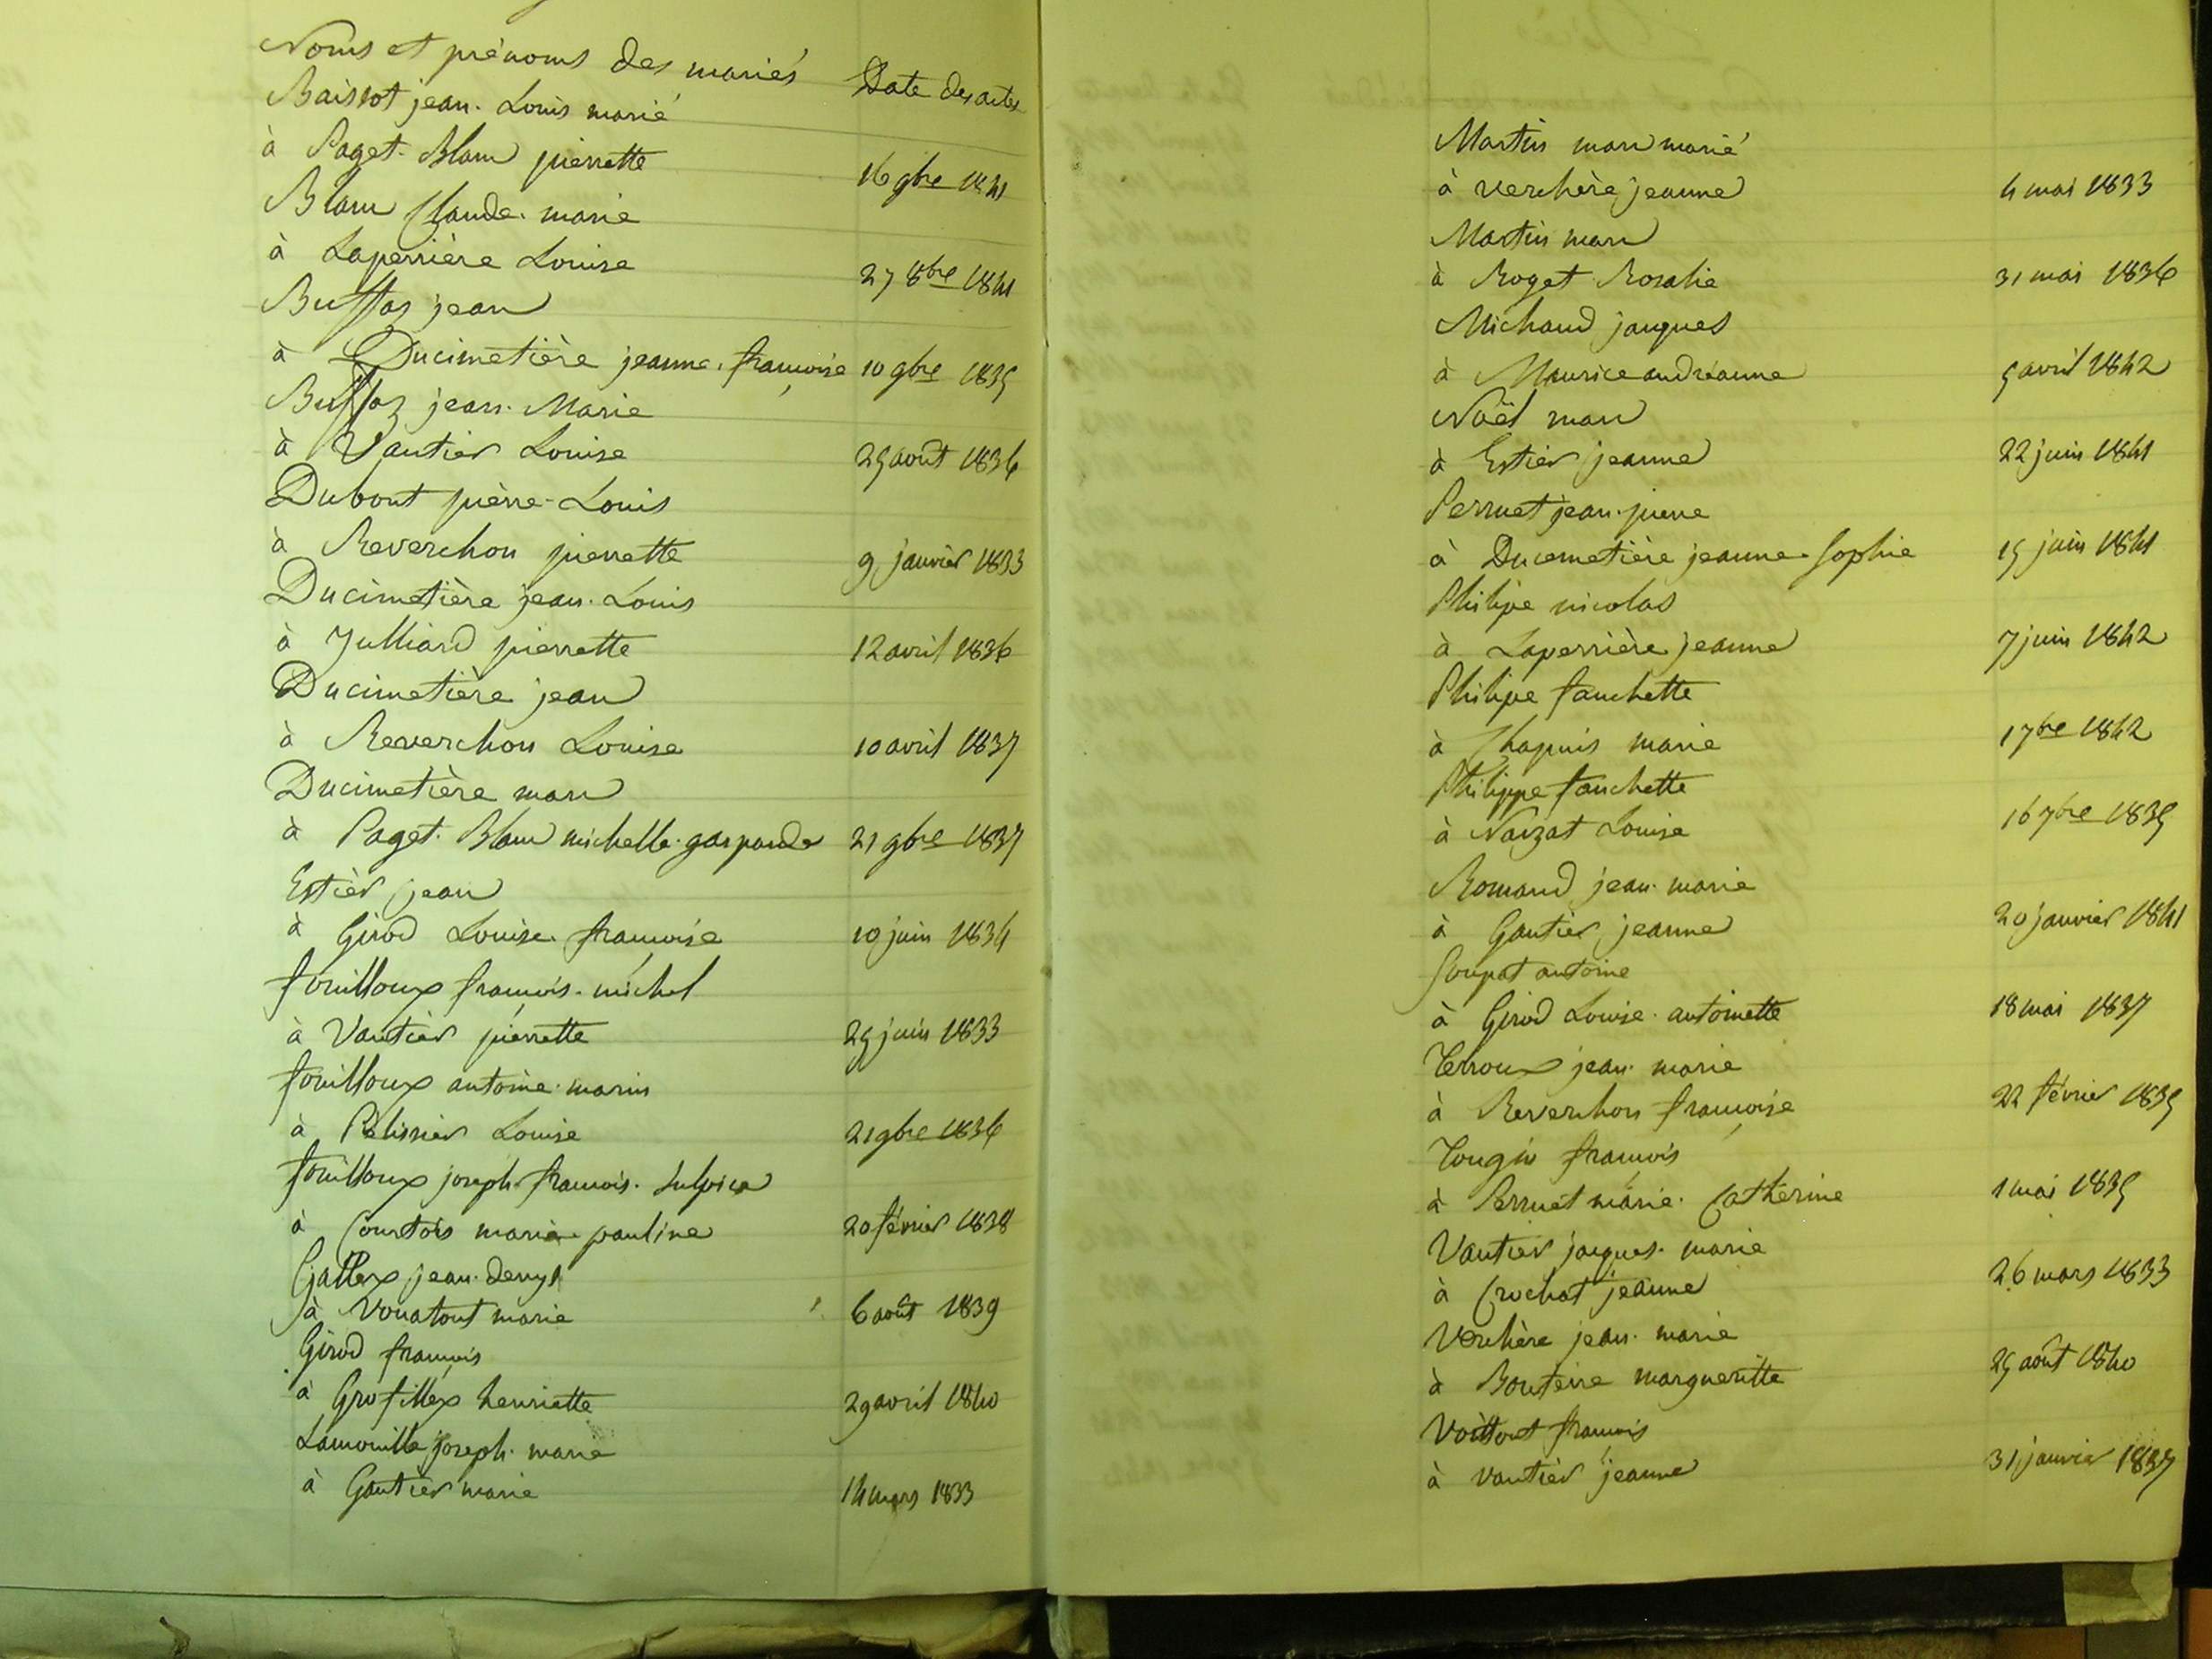 Noms et prénoms des mariés Date des actes
Baissot jean. Louis marié
à Paget. Blanc pierrette 16 9bre 1841
Blanc Claude. marie
à Laperrière Louise 27 8bre 1841
Buffaz jean
à Ducimetière jeanne. françoise 10 9bre 1835
Buffaz jean. Marie
à Vautier Louise 25 août 1836
Dubout pièrre-Louis
à Reverchon pierrette 9 janvier 1833
Ducimetière jean. Louis
à Julliard pierrette 12 avril 1836
Ducimetière jean
à Reverchon Louise 10 avril 1837
Ducimetière marc
à Paget. Blanc michelle. gasparde 21 9bre 1837
Estièr jean
à Girod Louise. françoise 10 juin 1834
fouilloux françois. michel
à Vautièr pierrette 25 juin 1833
fouilloux antoine. marin
à Pélissier Louise 21 9bre 1836
fouilloux joseph. françois. Sulpice
à Courtois marie. pauline 20 février 1838
Gallex jean. denys
à Vouatout marie 6 août 1839
Girod françois
à Grofillex henriette 29 avril 1840
Lamouille joseph. marie
à Gautièr marie 14 mars 1833
Martin marc marié
à verchère jeanne 4 mai 1833
Martin marc
à Roget Rosalie 31 mai 1836
Michaud jacques
à Maurice andréanne 5 avril 1842
Noël marc
à Estier jeanne 22 juin 1841
Perruet jean. pierre
à Ducemetière jeanne. Sophie 15 juin 1841
Philipe nicolas
à Laperrière jeanne 7 juin 1842
Philipe fanchette
à Chapuis marie 1 7bre 1842
Philippe fanchette
à Naizat Louise 16 7bre 1835
Romand jean. marie
à Gautier jeanne 20 janvier 1841
Soupat antoine
à Girod Louise. antoinette 18 mai 1837
Terroux jean. marie
à Reverchon françoise 22 février 1835
Tougin françois
à Perruet marie. Catherine 1 mai 1835
Vautier jacques. marie
à Crochat jeanne 26 mars 1833
Verchère jean. marie
à Bouteire margueritte 25 août 1840
Voittout françois
à Vautièr jeanne 31 janvier 1837